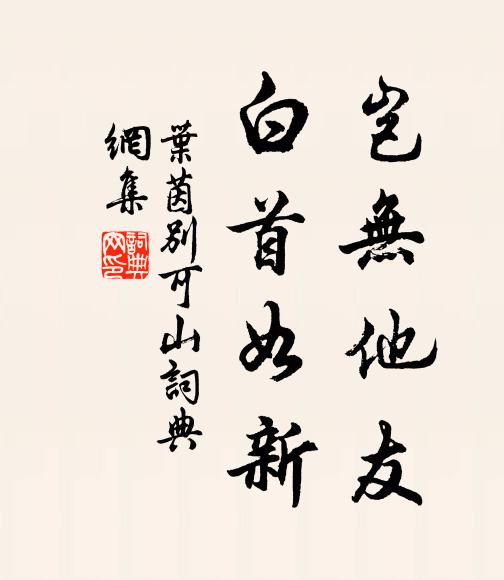 豈無他友
白首如新
葉茵別可山詞典
網集
詞典網印